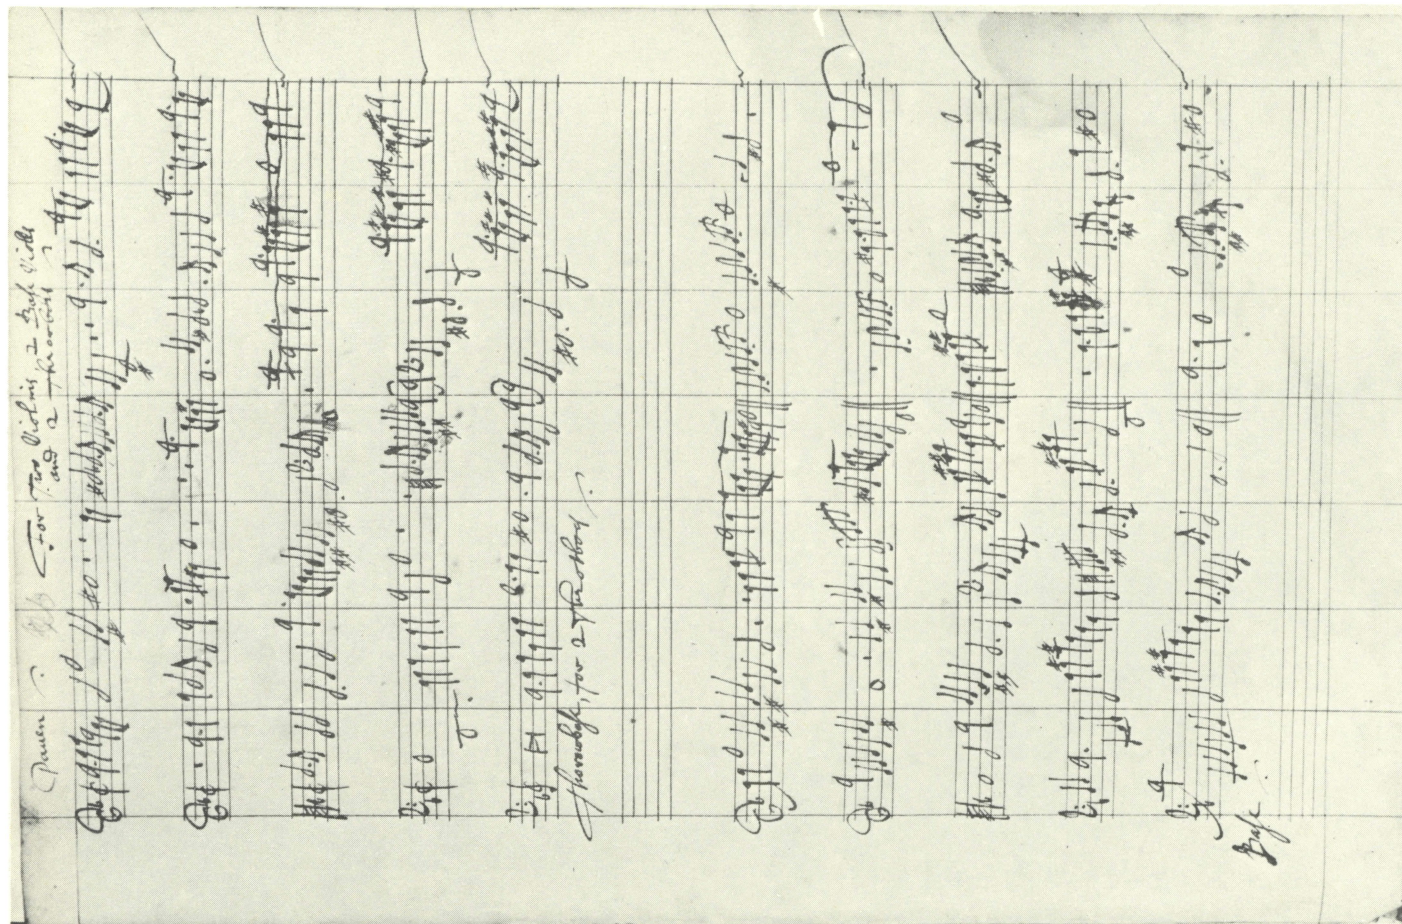 Paven
For Two Violins 2 Base Viols
and 2 Theorboes
Thorowbase, for 2 Theorboes
Base